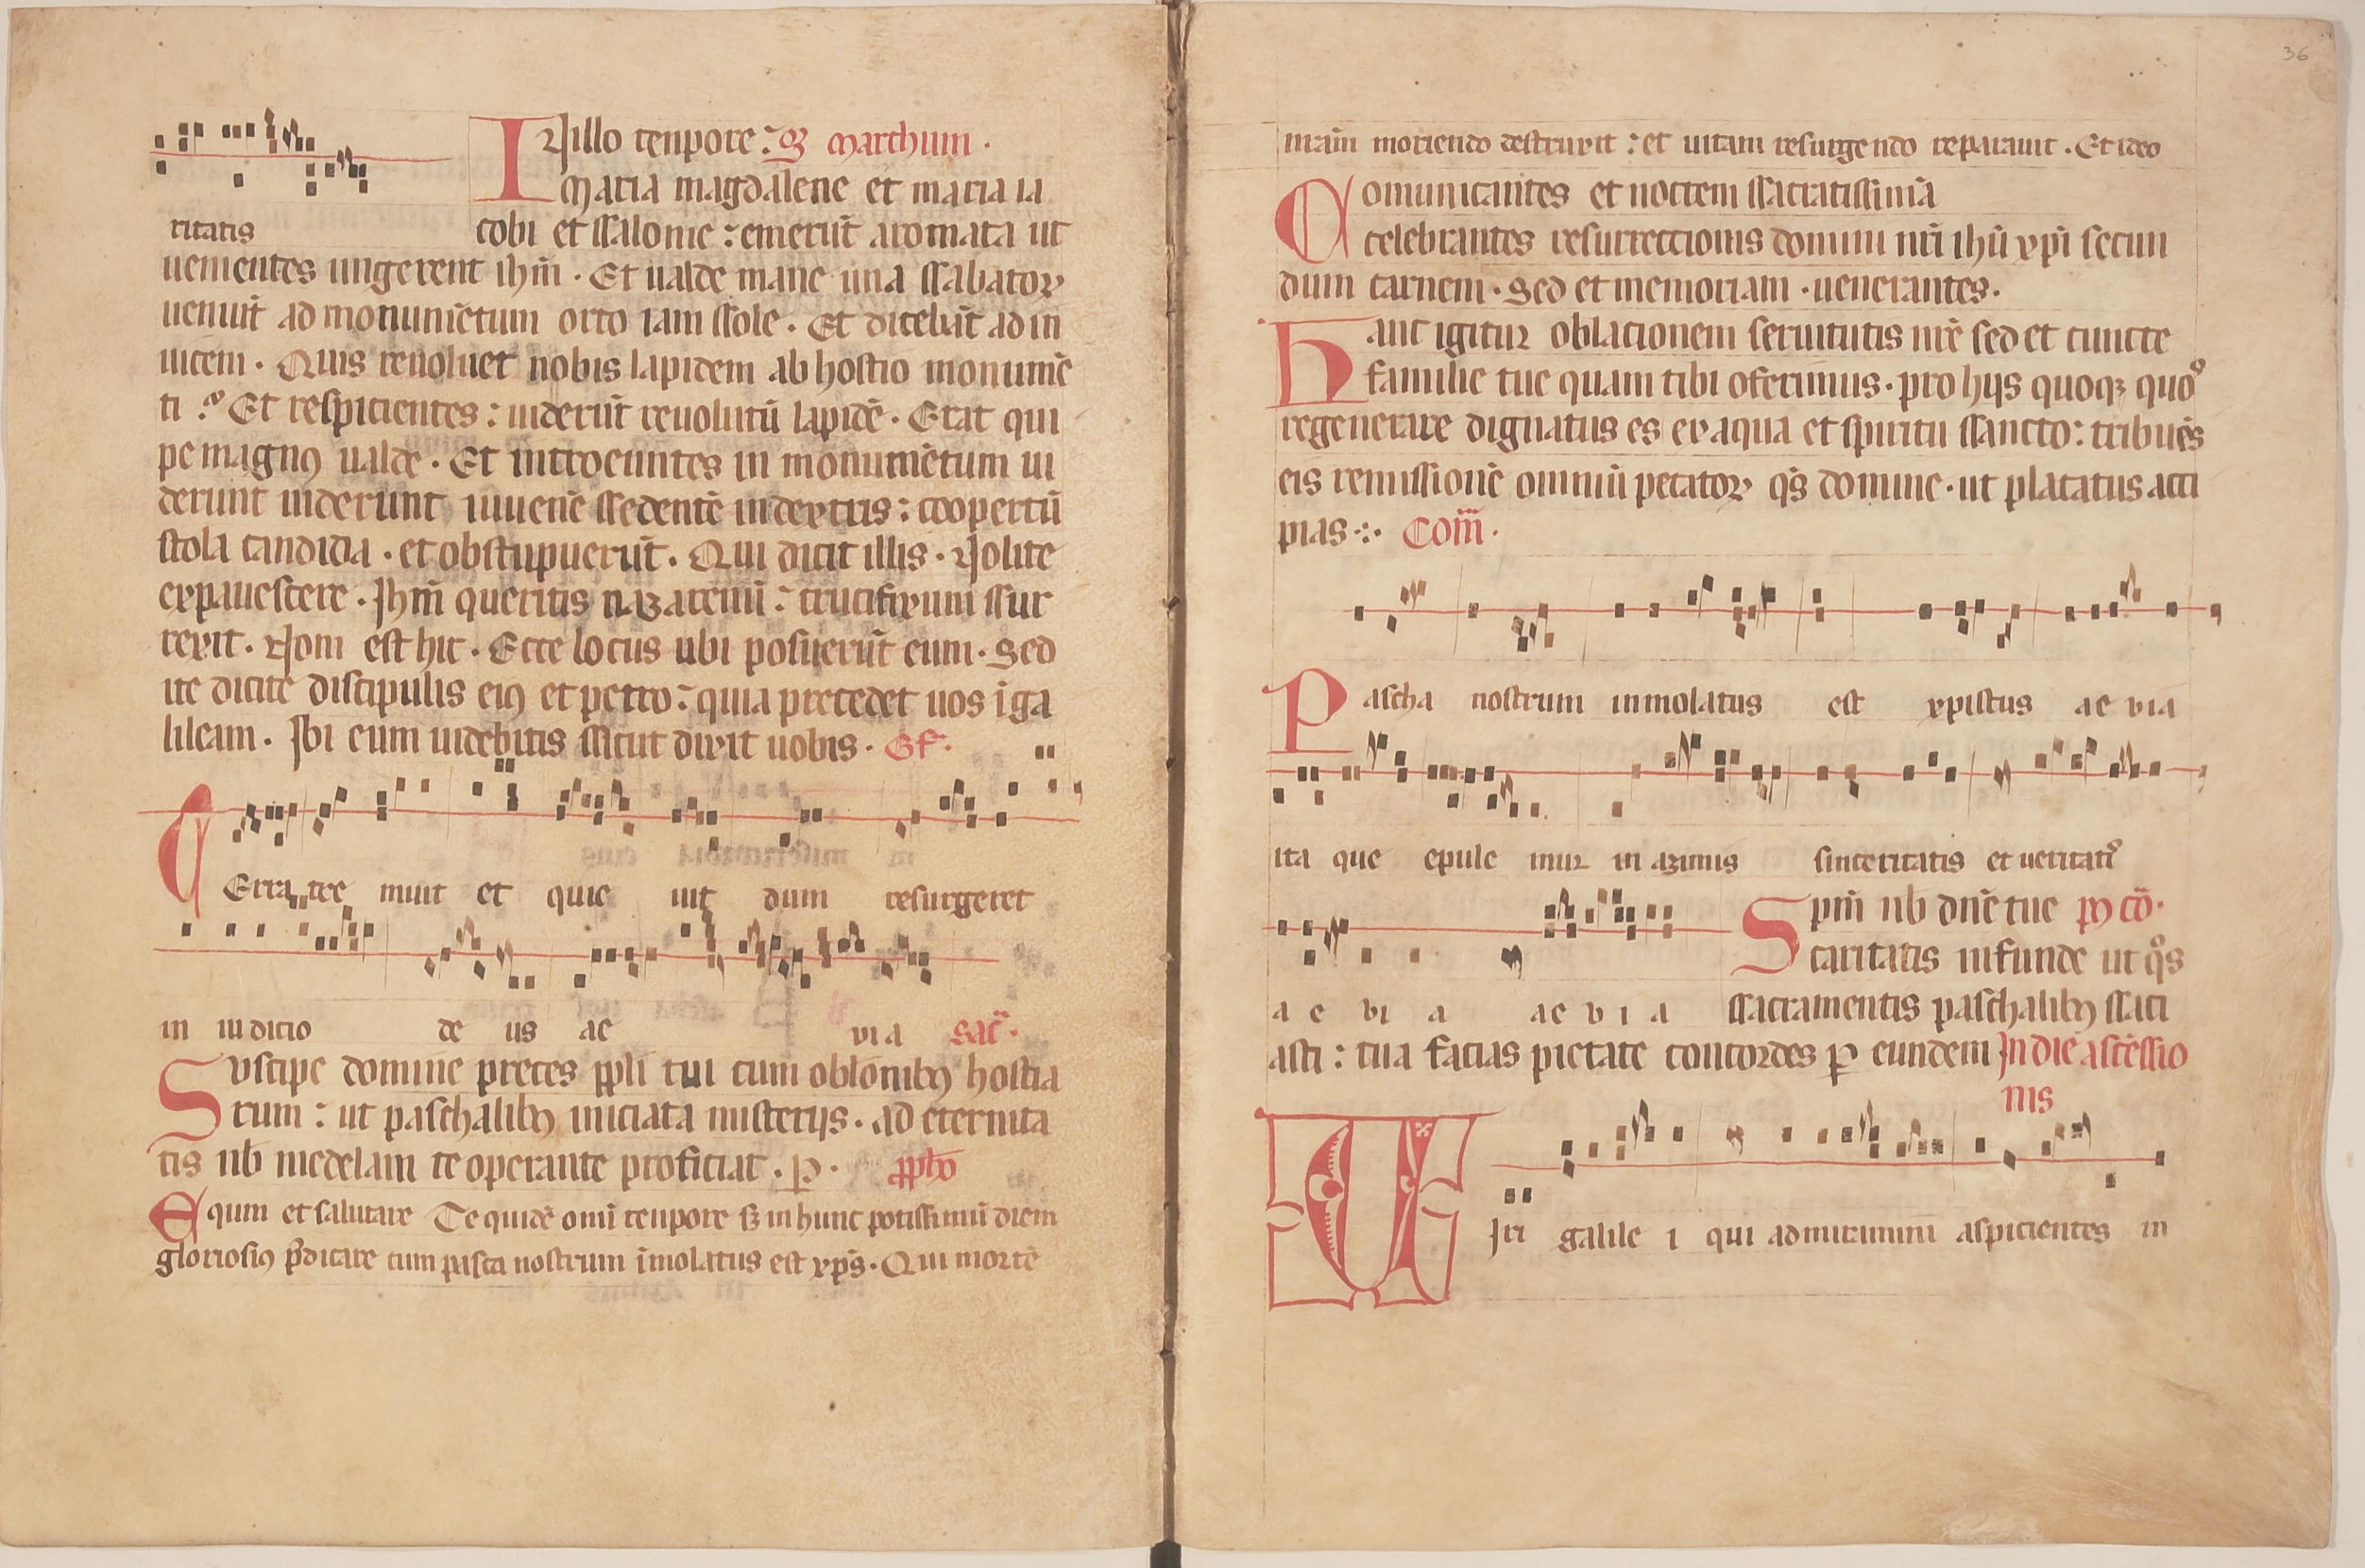 Jn illo tenpore : s̄ marchum .
Maria magdalene et maria ia
ritatis
cobi et ssalome : emerūt aromata ut
uenientes ungerent ihm̄ . Et ualde mane una ssabatoꝝ
ueniūt ad monumētum orto iam ssole . Et dicebāt ad in
uicem . Quis reuoluet nobis lapidem ab hostio monumē
ti . Et respicientes : uiderūt reuolutū lapidē . Erat qui
pe magnꝰ ualde . Et introeuntes in monumētum ui
derunt uiderunt iuuenē ssedentē in dextris : coopertū
stola candida . et obstupuerūt . Qui dicit illis . Nolite
expauescere . Jhm̄ queritis nazarenū : crucifixum ssur
rexit . Nom est hic . Ecce locus ubi posuerūt eum . Sed
ite dicite discipulis eiꝰ et petro : quia precedet uos ī ga
lileam . Jbi eum uidebitis ssicut dixit uobis . Of .
Terra tre muit et quie uit dum resurgeret
in iudicio de us ae via sac̄ .
Suscipe domine preces ppli tui cum oblōnibꝰ hostia
rum : ut paschalibꝰ iniciata misterijs . ad eternita
tis nb̄ medelam te operante proficiat . P .
Equm et salutare Te quidē omī tenpore sꝫ in hunc potissimū diem
gloriosiꝰ p̄dicare cum pasca nostrum īmolatus est xp̄s . Qui mortē
36
nrām moriendo destruxit : et uitam resurgendo reparauit . Et ideo
Comunicantes et noctem ssacratissimā
celebrantes resurrectionis domini nr̄i ihū xp̄i secun
dum carnem . Sed et memoriam . uenerantes .
Hanc igitur oblacionem seruitutis nr̄e sed et cuncte
familie tue quam tibi oferimus . pro hijs quoqꝫ quoꝰ
regenerare dignatus es ex aqua et spiritu ssancto : tribuēs
eis remissionē omniū pecatoꝝ qs̄ domine . ut placatus acci
pias . Com̄ .
Pascha nostrum inmolatus est xpistus ae via
ita que epule mur in azimis sinceritatis et ueritatis
Spm̄ nb̄ dn̄e tue pꝰ cō .
caritatis infunde ut qͦs
a e vi a ae v i a ssacramentis paschalibꝰ ssaci
asti : tua facias pietate concordes ꝑ eundem Jn die ascēssio
nis
Viri galile i qui admiramini aspicientes in